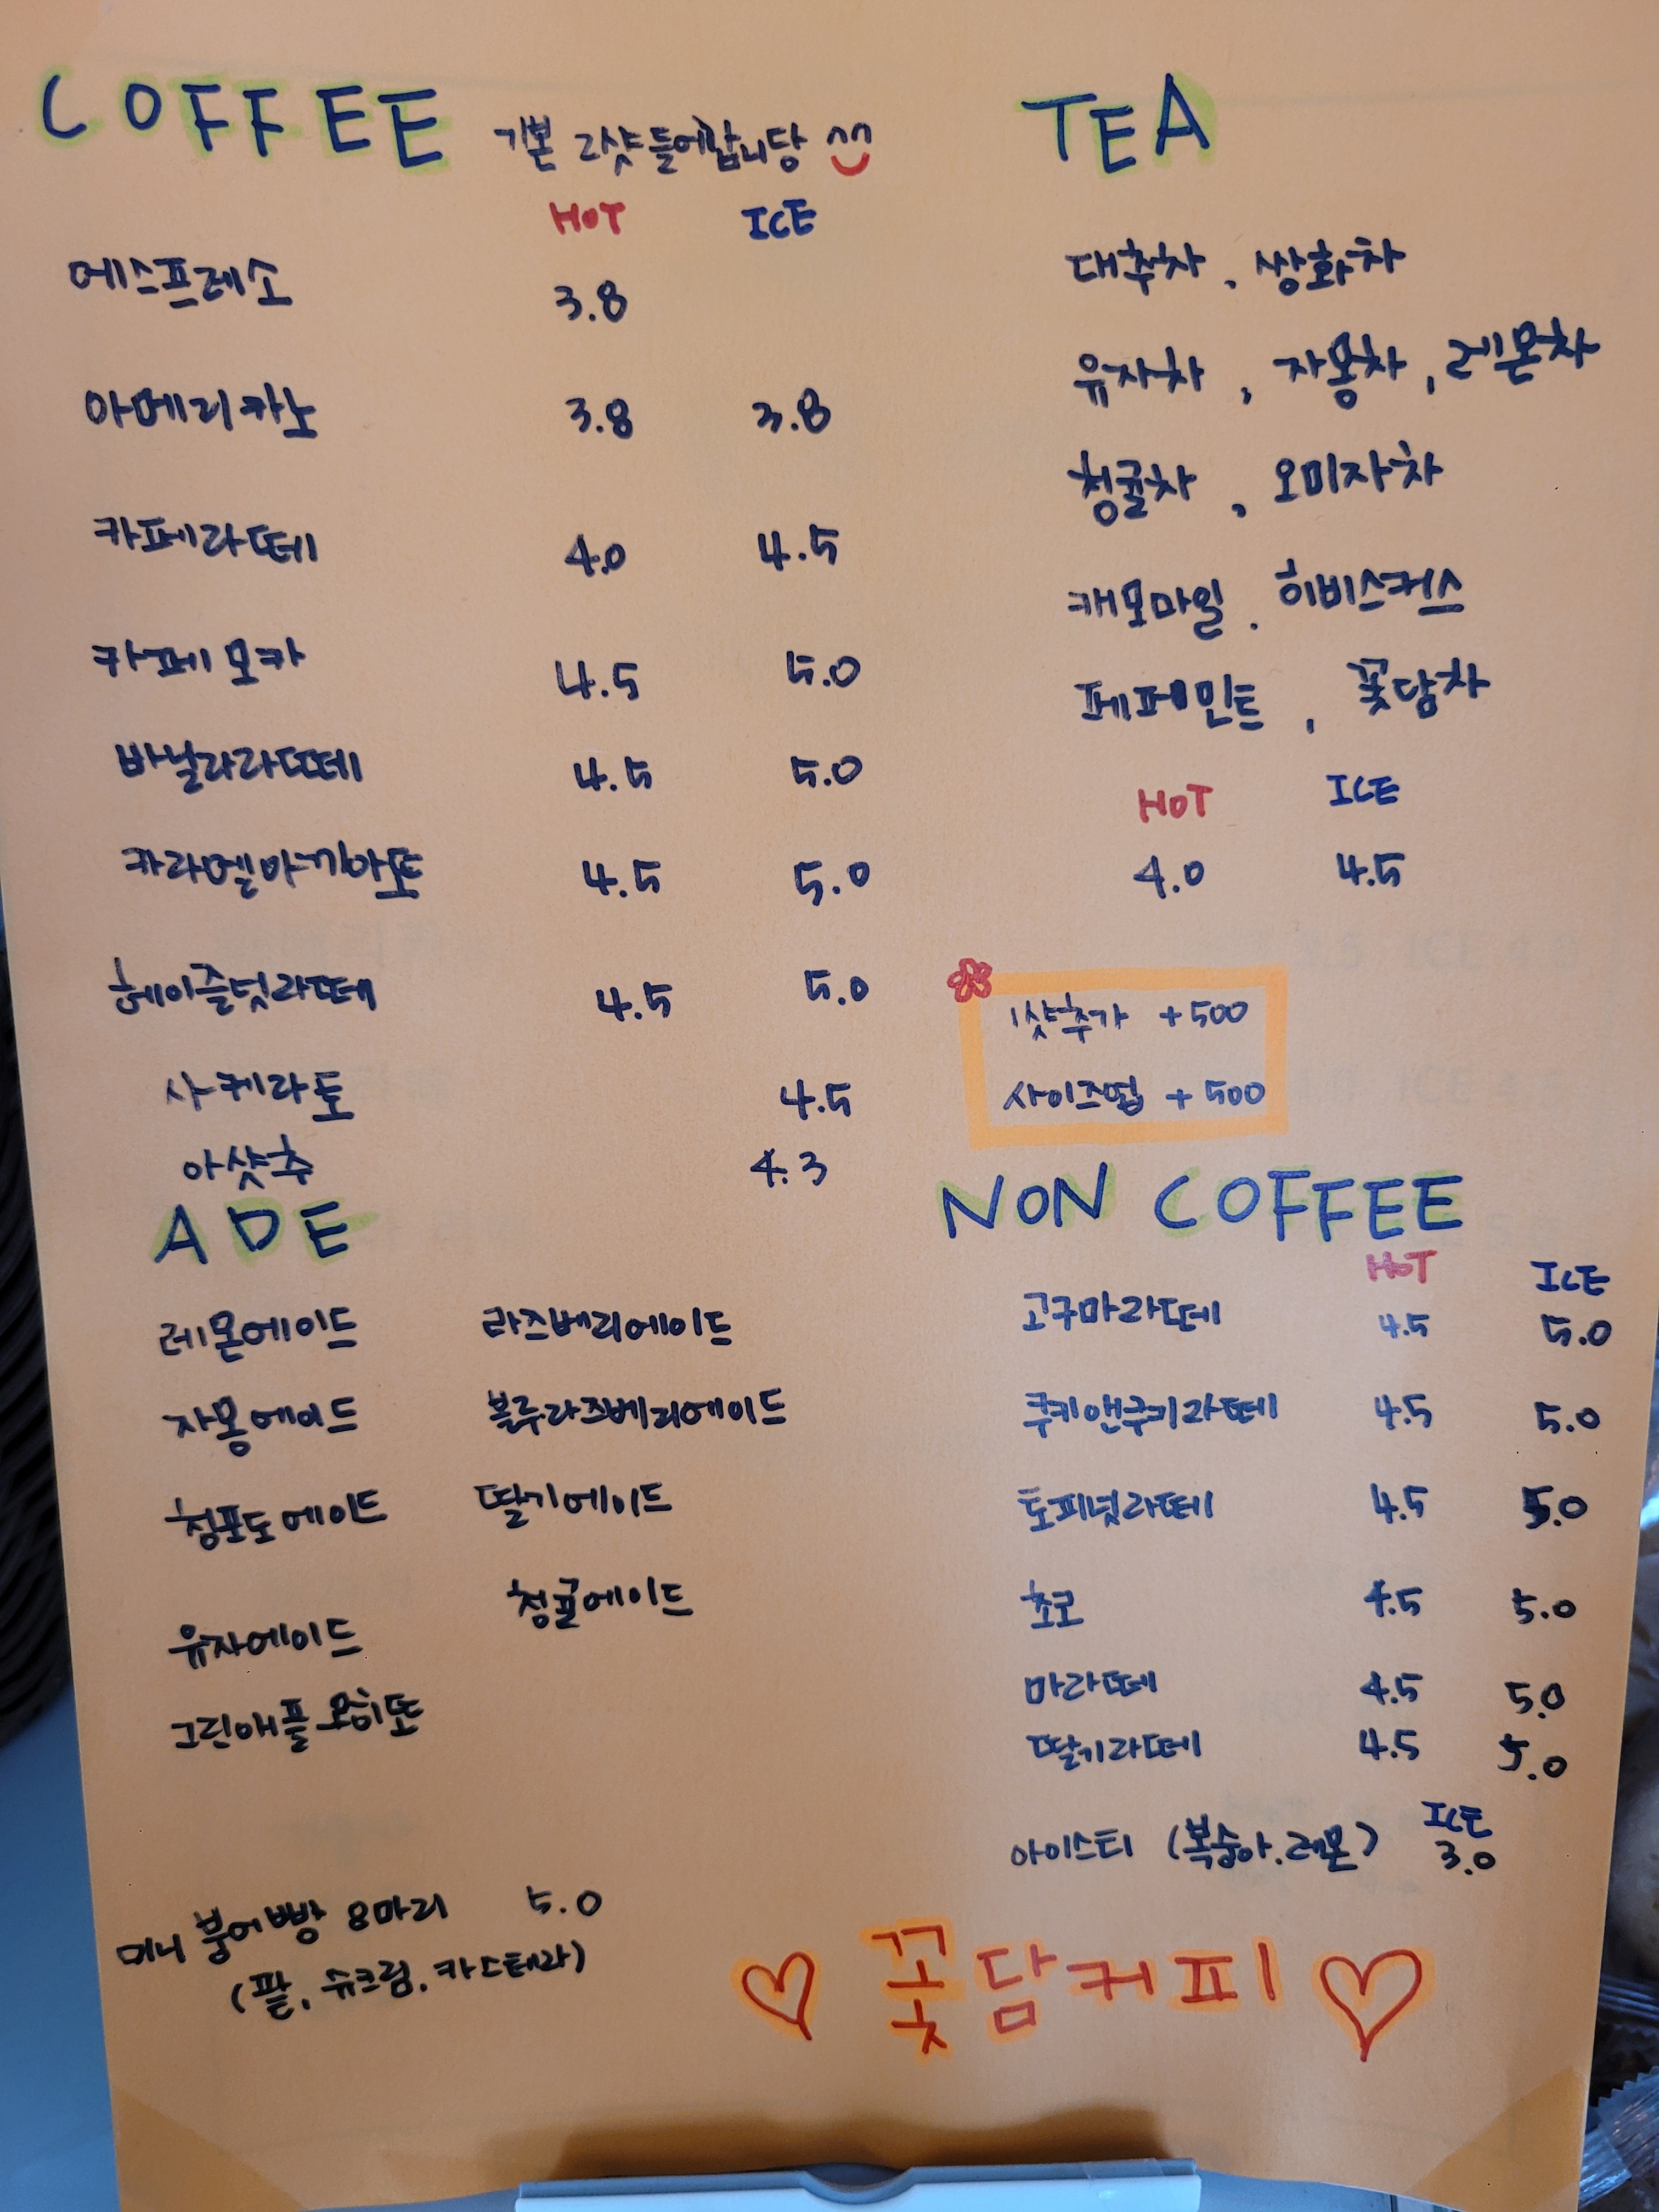 COFFEE 기본 2샷 들어갑니당
HOT ICE
에스프레소 3.8
아메리카노 3.8 3.8
카페라떼 4.0 4.5
카페모카 4.5 5.0
바닐라라떼 4.5 5.0
카라멜마끼아또 4.5 5.0
헤이즐넛라떼 4.5 5.0
샤케라토 4.5
아샷추 4.3
TEA
대추차, 쌍화차
유자차, 자몽차, 레몬차
청귤차, 오미자차
캐모마일. 히비스커스
페퍼민트, 꽃담차
HOT ICE
4.0 4.5
1샷추가 +500
사이즈업 +500
ADE
레몬에이드 라즈베리에이드
자몽에이드 블루라즈베리에이드
청포도에이드 딸기에이드
유자에이드 청귤에이드
그린애플모히또
미니 붕어빵 8마리 5.0
(팥, 슈크림, 카스테라)
NON COFFEE
HOT ICE
고구마라떼 4.5 5.0
쿠키앤쿠키라떼 4.5 5.0
토피넛라떼 4.5 5.0
초코 4.5 5.0
마라떼 4.5 5.0
딸기라떼 4.5 5.0
ICE
아이스티 (복숭아.레몬) 3.0
♡ 꽃담커피 ♡